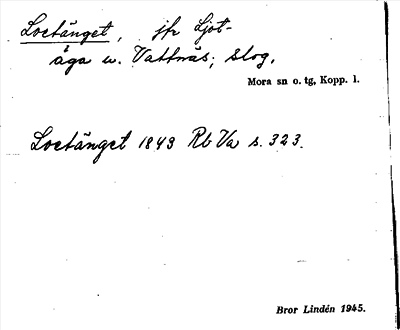 Loetänget, jfr Ljot-
åga w. Vattnäs; slog.
Mora sn o. tg, Kopp. l.
Loetänget 1843 Rb Va s. 323.
Bror Lindén 1945.